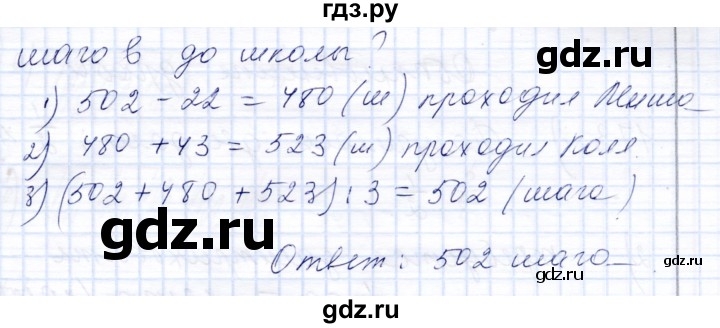 гдз.ру
шагов до школы?
1) 502 - 22 = 480 (ш) проходил Миша
2) 480 + 43 = 523 (ш) проходил Коля.
3) (502 + 480 + 523) : 3 = 502 (шага)
gdz.ru
Ответ: 502 шага
gdz.ru